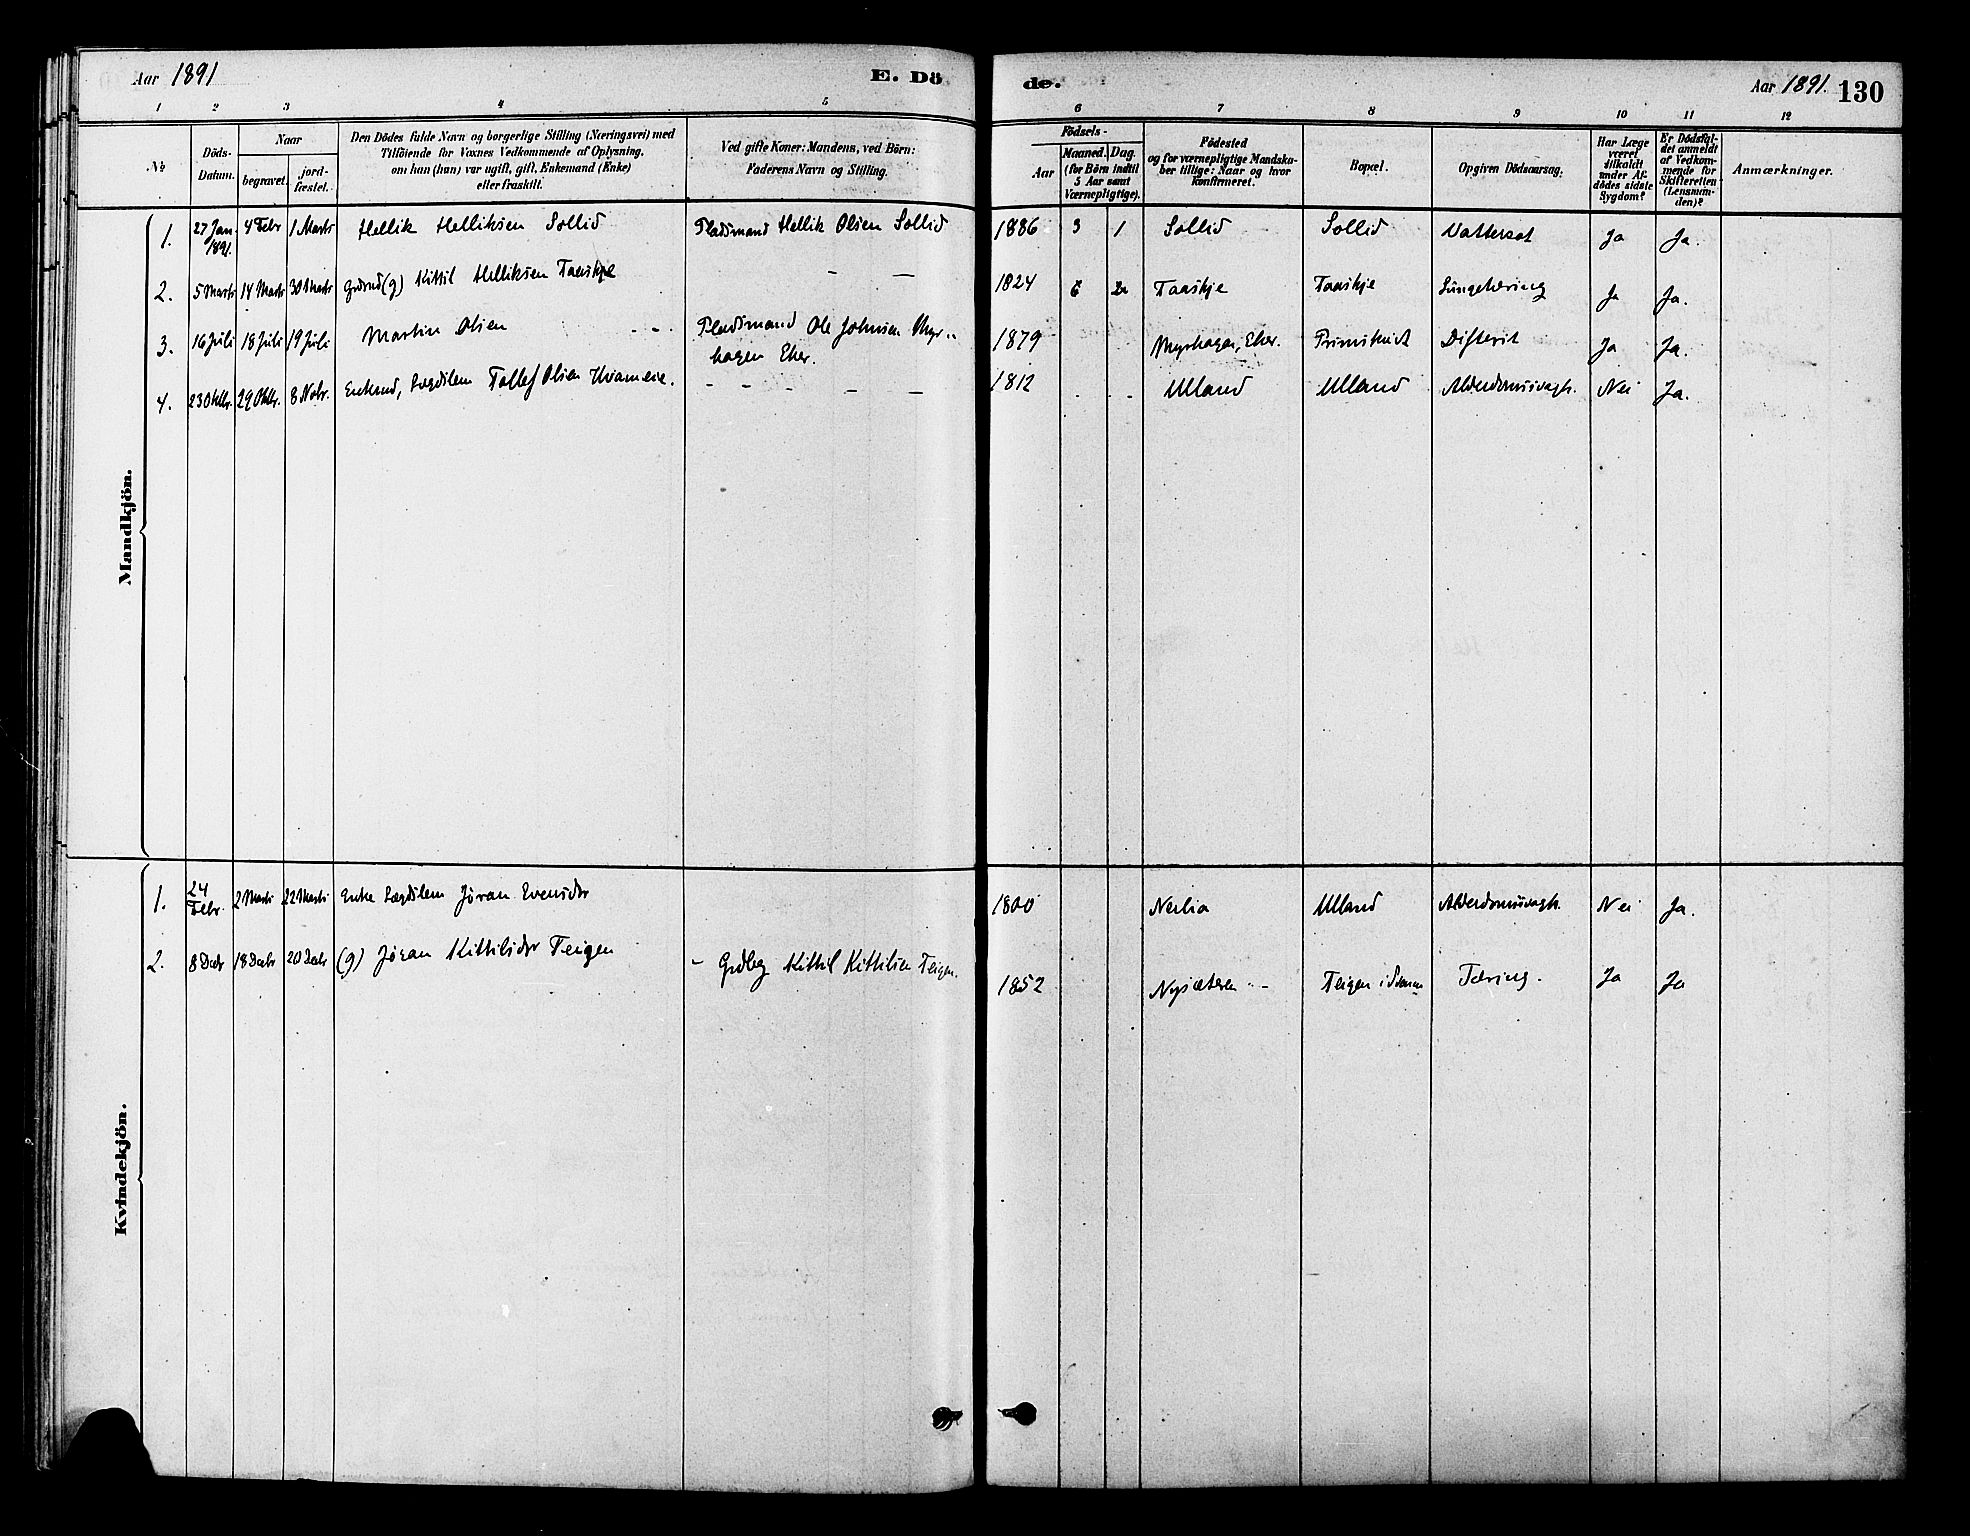 Aar 1891
E. Dö
de.
Aar 1891. 130
1 2 3 4 5 6 7 8 9 10 11 12
No.
Döds-Datum.
Naar
begravet.
jord-fæstet.
Den Dödes fulde Navn og borgerlige Stilling (Næringsvei) med
Tilföiende for Voxnes Vedkommende af Oplysning,
om han (hun) var ugift, gift, Enkemand (Enke)
eller fraskilt.
Ved gifte Koner: Mandens, ved Börn:
Faderens Navn og Stilling.
Födsels-
Aar
Maaned. Dag.
(for Børn indtil
5 Aar samt
Værnepligtige).
Födested
og for værnepligtige Mandska-
ber tillige: Naar og hvor
konfirmeret.
Bopæl.
Opgiven Dödsaarsag.
Har Læge
været
tilkaldt
under Af-
dödes sidste
Sygdom?
Er Dödsfal-
det anmeldt
af Vedkom-
mende for
Skifteretten
(Lensman-
den)?
Anmærkninger.
Mandkjön.
1. 27 Jan. 1891. 4 Febr 1 Marts Hellik Helliksen Sollid Pladsmand Hellik Olsen Sollid 1886 3 1 Sollid Sollid Vattersot Ja Ja.
2. 5 Marts 14 Marts 30 Marts (g) Kittil Helliksen Taaskje - — 1824 6 Taaskje Taaskje Lungetæring Ja Ja.
3. 16 Juli 18 Juli 19 Juli Martin Olsen Pladsmand Ole Johnsen Myr-
hagen Eker. 1879 Myrhagen, Eker. Difterit Ja Ja.
4. 23 Oktbr. 29 Oktbr. 8 Nobr. Enkemd, Lægdslem Tollef Olsen Kvameie. - - - — — 1812 Ulland Ulland Alderdomssvagh. Nei Ja.
Kvindekjön.
1. 24 Febr. 2 Marts 22 Marts Enke Lægdslem Jøran Evensdr 1800 Nerlia Ulland Alderdomssvagh. Nei Ja.
2. 8 Decbr 18 Decbr 20 Decbr (g) Jøran Kittilsdr Teigen - Grdbrg Kittil Kittilsen Teigen. 1852 Nysæteren Teigen i Tæring. Ja Ja